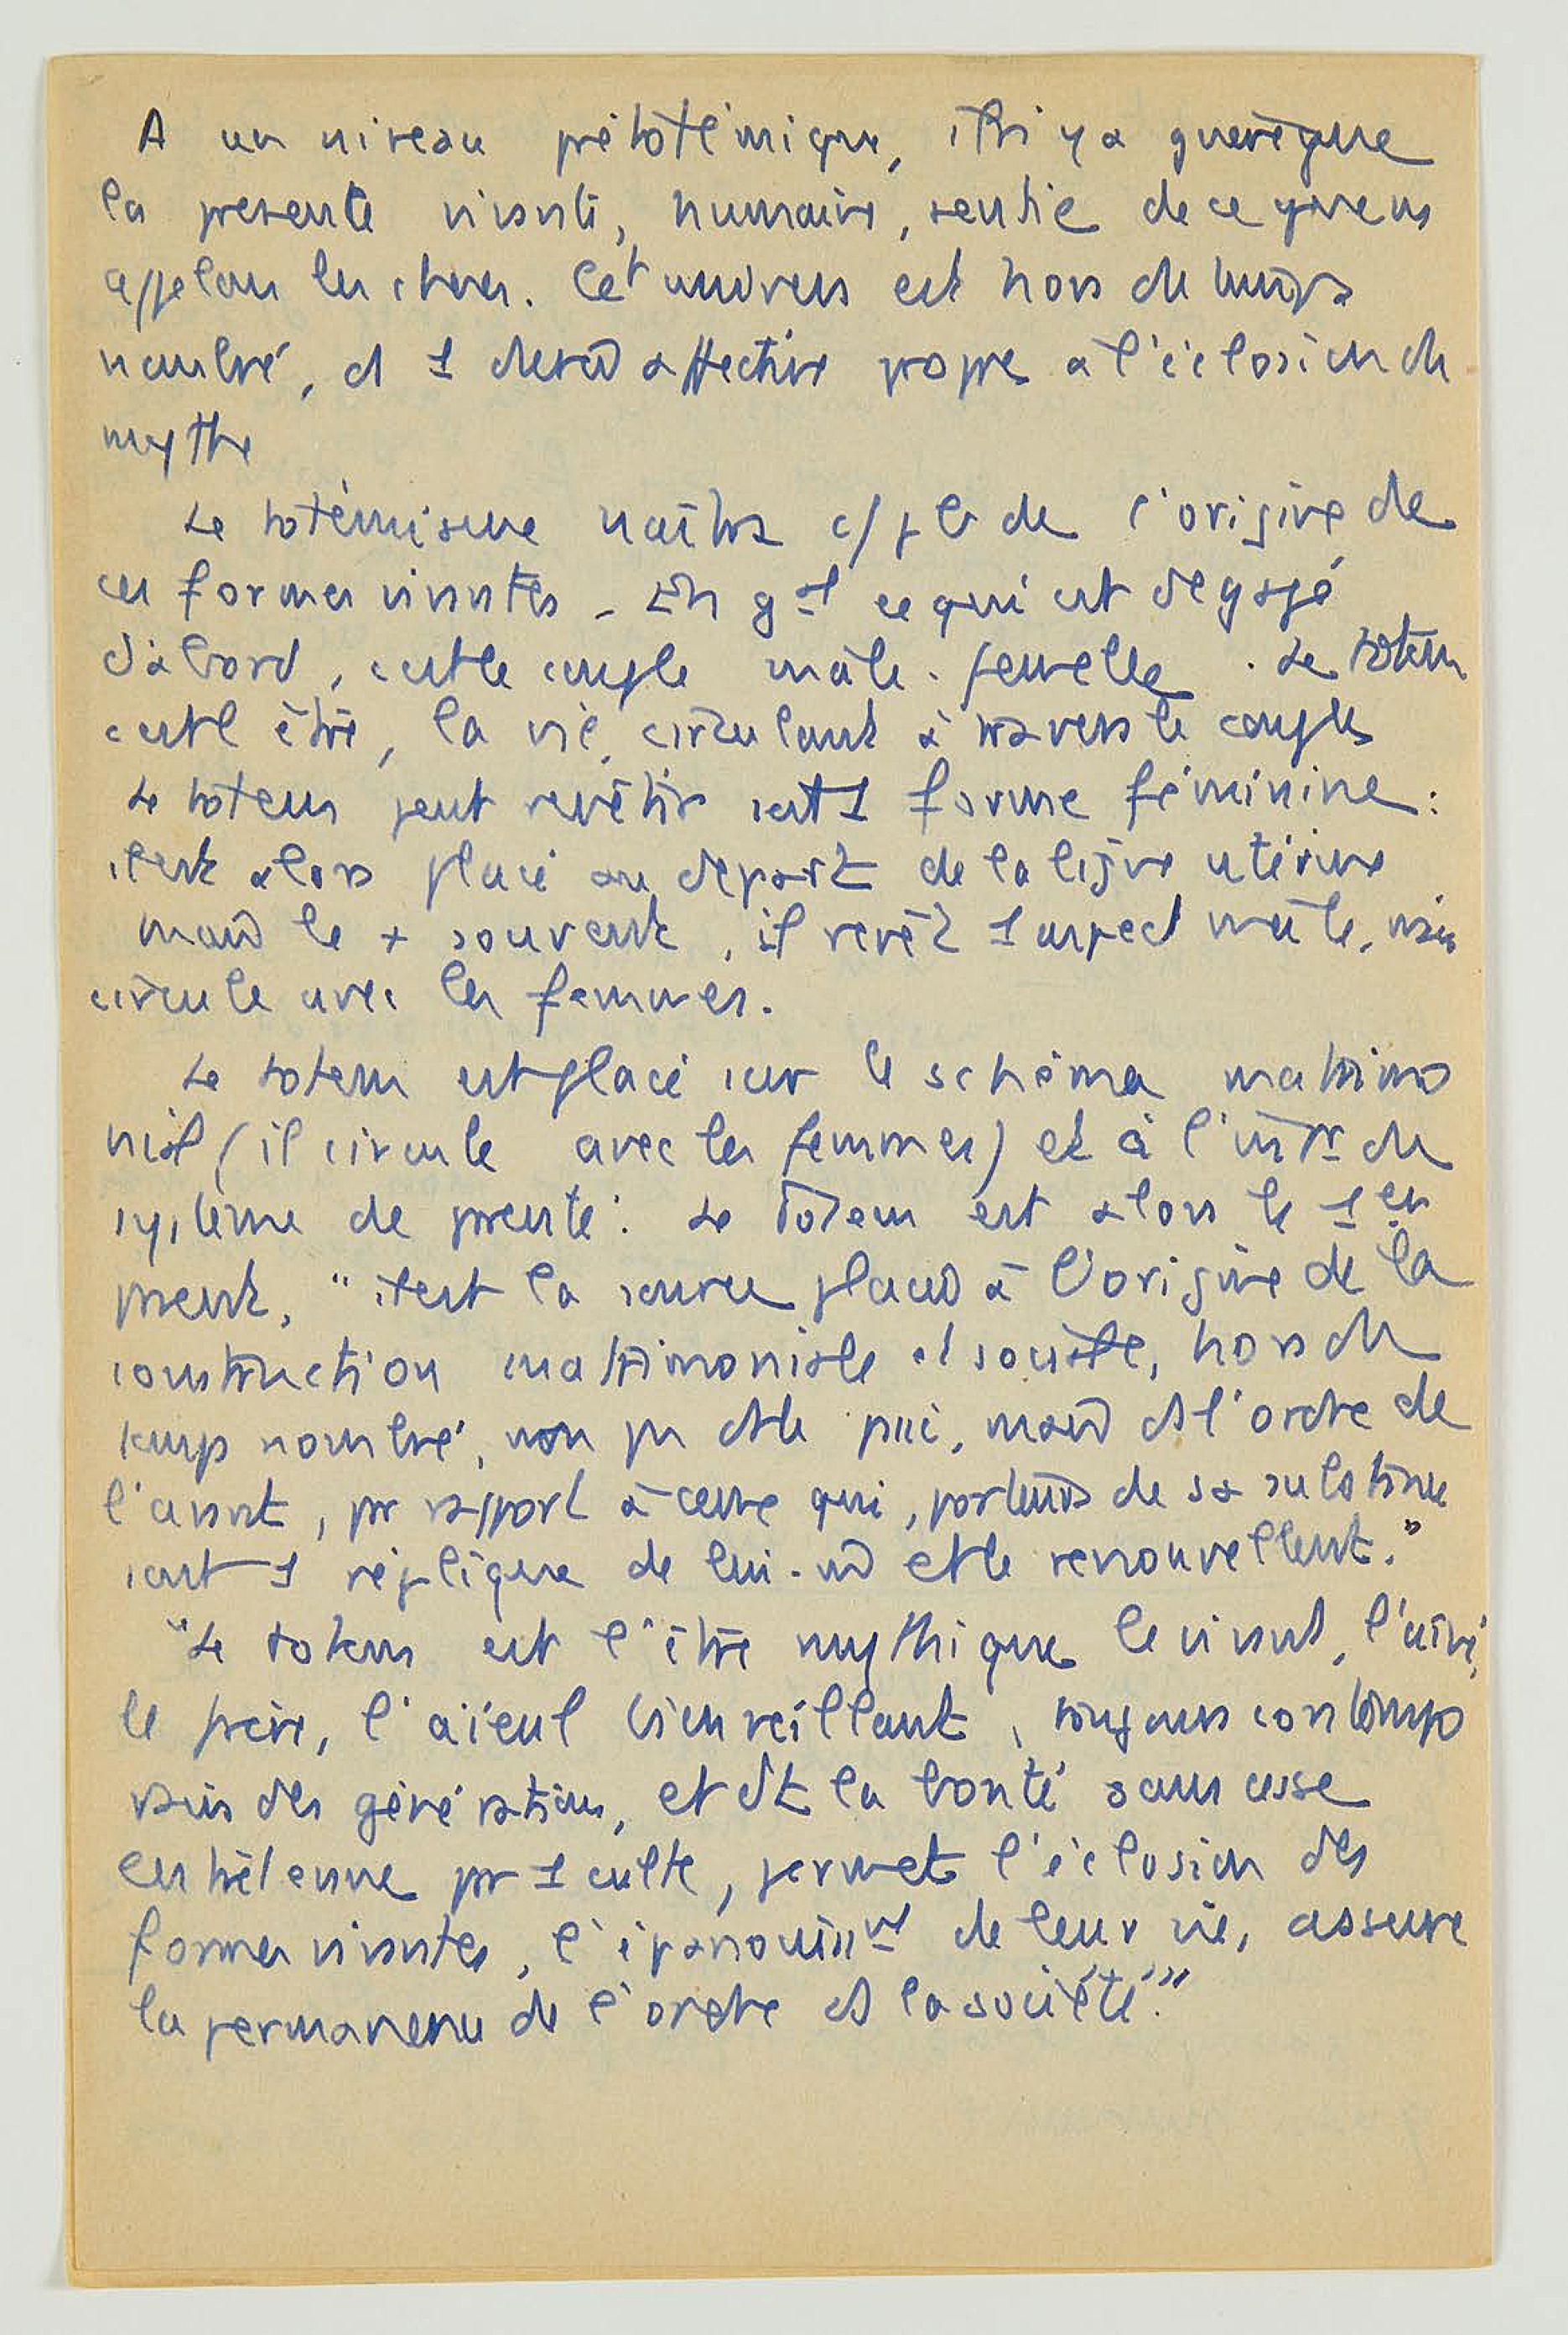 A un niveau prétotémique, il n'y a guère que
la parenté vivante, humaine, sentie de ce que ns
appelons les choses. Cet univers est hors du temps
nombré, ds 1 durée affective propre à l'éclosion du
mythe
Le totémisme naîtra c/ pb de l'origine de
ces formes vivantes - En gal ce qui est dégagé
d'abord, c'est le couple mâle-femelle. Le totem
c'est l'être, la vie, circulant à travers le couple
Le totem peut revêtir soit 1 forme féminine :
il est alors placé au départ de la ligne utérine
mais le + souvent, il revêt 1 aspect mâle, mais
circule avec les femmes.
Le totem est placé sur le schéma matrimo
nial (il circule avec les femmes) et à l'intr du
système de parenté : Le Totem est alors le 1er
parent, "il est la source placée à l'origine de la
construction matrimoniale et sociale, hors du
temps nombré, non pas ds le passé, mais ds l'ordre de
l'avant, par rapport à ceux qui, porteurs de sa substance
sont 1 réplique de lui-m̂ et le renouvellent."
"Le totem est l'être mythique le vivant, l'aîné,
le père, l'aïeul bienveillant, toujours contempo
rain des générations, et dt la bonté sans cesse
entretenue par 1 culte, permet l'éclosion des
formes vivantes, l'épanouissmt de leur vie, assure
la permanence de l'ordre ds la société."